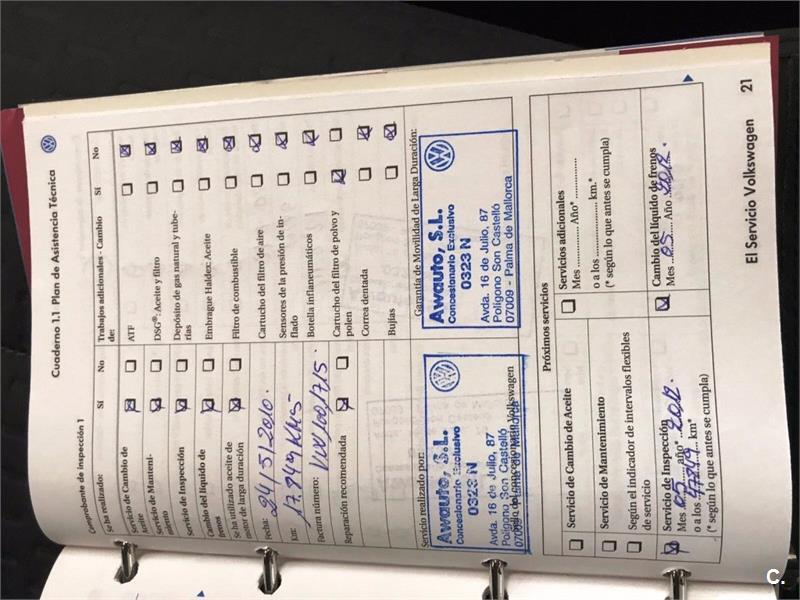 Cuaderno 1.1 Plan de Asistencia Técnica
Comprobante de inspección 1
Se ha realizado: Sí No
Servicio de Cambio de Aceite
Servicio de Manteni-
miento
Servicio de Inspección
Cambio del líquido de
frenos
Se ha utilizado aceite de
motor de larga duración
Fecha: 24/5/2010.
Km: 17.849 KMS-
Factura número:
Separación recomendada
Trabajos adicionales - Cambio de: Sí No
ATF
DSG®: Aceite y filtro
Depósito de gas natural y tube-
rías
Embrague Haldex: Aceite
Filtro de combustible
Cartucho del filtro de aire
Sensores de la presión de in-
flado
Botella inflaneumáticos
Cartucho del filtro de polvo y
polen
Correa dentada
Bujías
Servicio realizado por:
Awauto, S.L.
Concesionario Exclusivo
0323 N
Avda. 16 de Julio, 87
Polígono Son Castelló
07009 - Palma de Mallorca
Sello del concesionario Volkswagen
Garantía de Movilidad de Larga Duración:
Awauto, S.L.
Concesionario Exclusivo
0323 N
Avda. 16 de Julio, 87
Polígono Son Castelló
07009 - Palma de Mallorca
Próximos servicios
Servicio de Cambio de Aceite
Servicio de Mantenimiento
Según el indicador de intervalos flexibles
de servicio
Servicio de Inspección
Mes 05 año* 2012.
o a los 47849 km*
(* según lo que antes se cumpla)
Servicios adicionales
Mes ............ Año* ...............
o a los ............... km.*
(* según lo que antes se cumpla)
Cambio del líquido de frenos
Mes 05 Año 2012.
El Servicio Volkswagen 21
C.